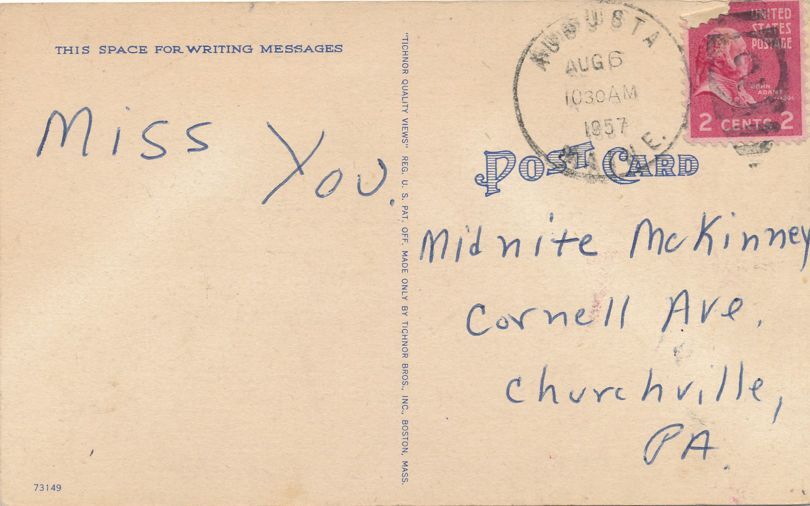 THIS SPACE FOR WRITING MESSAGES
MISS
You.
"TICHNOR QUALITY VIEWS" REG. U. S. PAT. OFF. MADE ONLY BY TICHNOR BROS., INC., BOSTON, MASS.
73149
AUGUSTA
AUG 6
1030 AM
1957
MAINE.
UNITED
STATES
POSTAGE
JOHN
ADAMS
2 CENTS 2
POST CARD
Midnite McKinney
Cornell Ave.
Churchville,
PA.